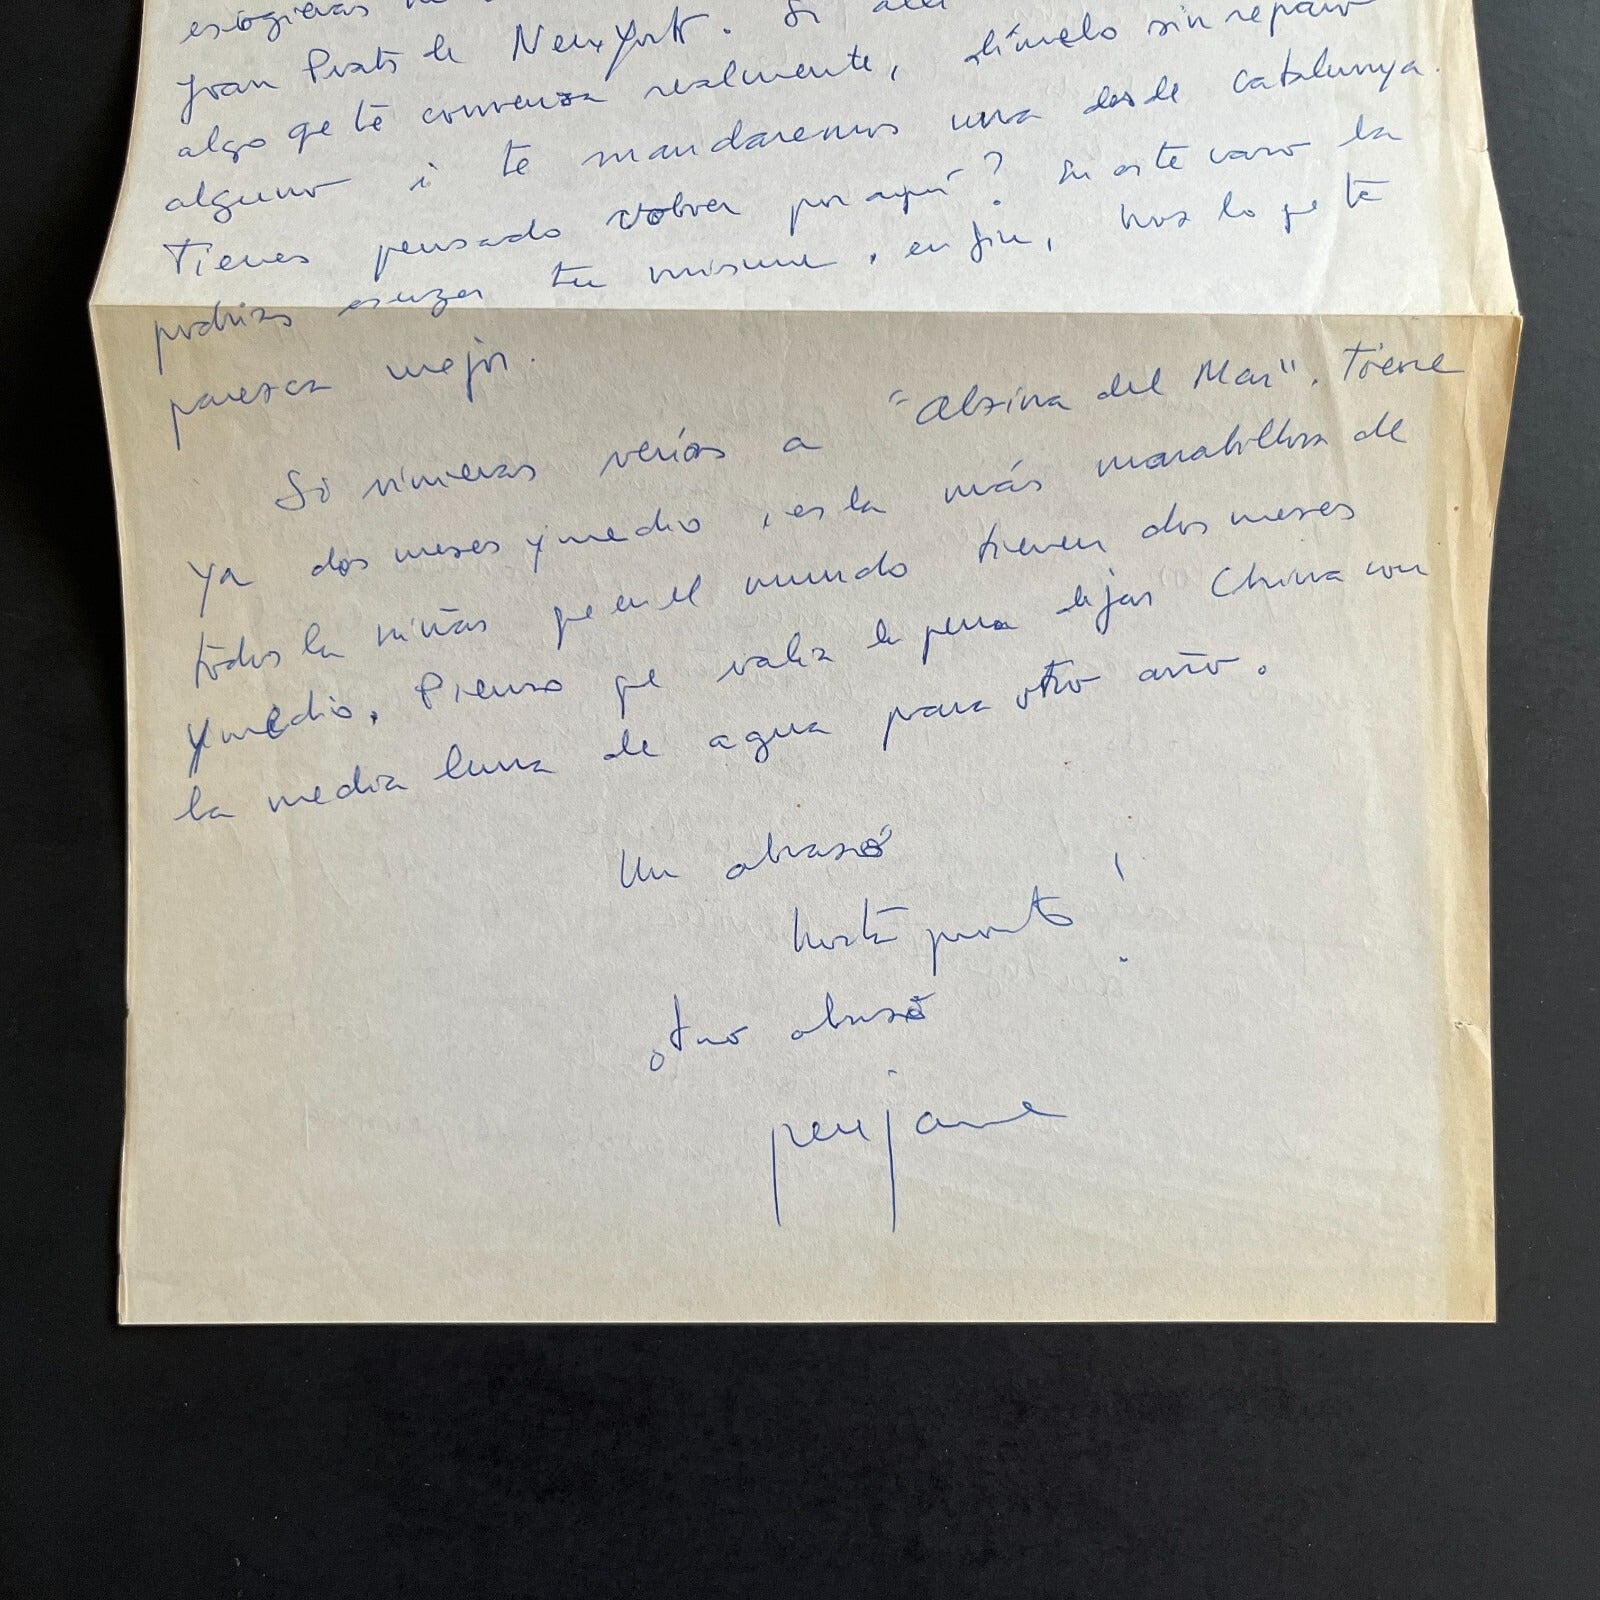 escogieras
Joan Prats de New York. Si
algo qe te convenza realmente, dímelo sin reparo
alguno i te mandaremos una desde Catalunya.
Tienes pensado volver por aquí? En este caso la
podrias escojer tu misma, en fin, haz lo qe te
paresca mejor.
Si vinieras verías a "Alsina del Mar". Tiene
ya dos meses y medio, es la más marabillosa de
todas la niñas qe en el mundo tienen dos meses
y medio. Pienso qe valia la pena dejar China con
la media luna de agua para otro año.
Un abraso
hasta pronto!
otro abraso
perejaume